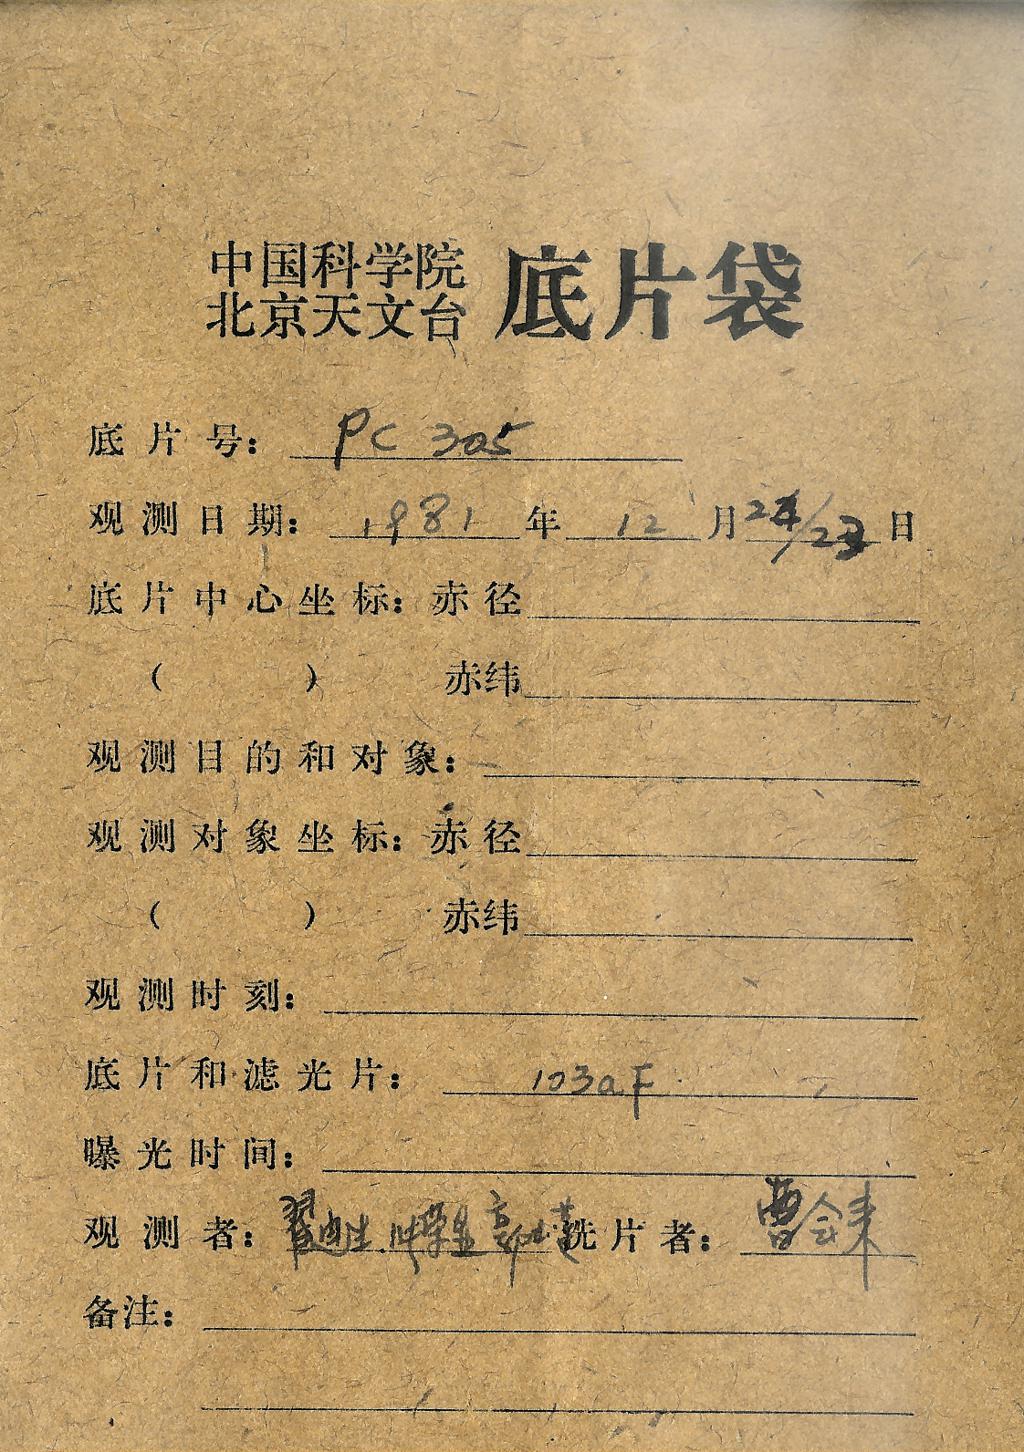 中国科学院
北京天文台 底片袋
底片号: PC 305
观测日期: 1981年12月24/23日
底片中心坐标: 赤径
( ) 赤纬
观测目的和对象:
观测对象坐标: 赤径
( ) 赤纬
观测时刻:
底片和滤光片: 103aF
曝光时间:
观测者: 洗片者: 曹会来
备注: